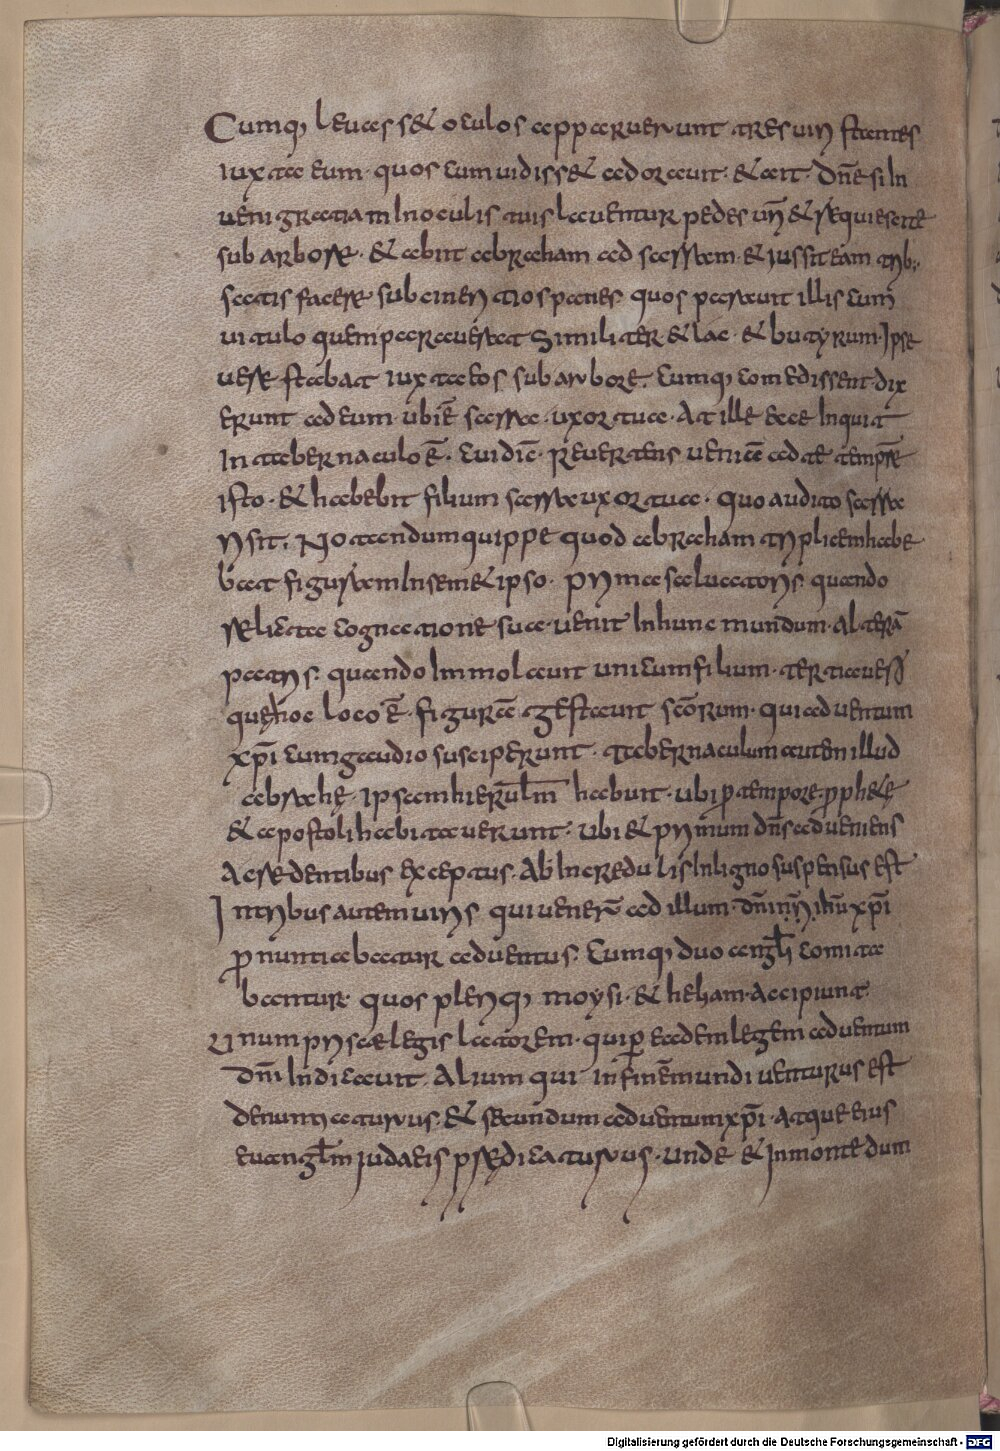 Cumq; leuasset oculos apparuerunt tres uiri stantes
iuxta eum· quos cum uidisset adorauit· et ait· dñe si in
ueni gratiam in oculis tuis lauentur pedes uri et requiescite
sub arbore· et abiit abraham ad sarram· et iussit eam trib;
satis facere subcinericios panes quos parauit illis cum
uitulo quem pararauerat Similiter et lac· et butyrum· Ipse
uero stabat iuxta eos sub arbore· Cumq; comedissent dix
erunt ad eum· ubi ē sarra· uxor tua· At ille ecce inquit
In tabernaculo ē· cui dic̄· Reuertens ueniā ad te tempore
isto· et habebit filium sarra uxor tua· quo audito sarra
risit· Notandum quippe quod abraham triplicem habe
bat figuram in semetipso· prima saluatoris· quando
relicta cognatione sua· uenit in hunc mundum· Alterā
patris· quando immolauit unicum filium· tertia uero
quę hoc loco ē· figurā gestauit scōrum· qui aduentum
xp̄i cum gaudio susceperunt· tabernaculum autem illud
abrahę· ipsam hierusl̄m habuit· ubi p̱ tempore prophetę
et apostoli habitauerunt· ubi et primum dñs adueniens
A credentibus exceptus· Ab incredulis in ligno suspensus est
In tribus autem uiris qui uenerū ad illum· dn̄i nr̄i ih̄u xp̄i
p̱nuntiabatur aduentus· Cumq; duo angl̄i comita
bantur· quos pleriq; moysi· et heliam· Accipiunt·
Unum priscae legis latorem· qui p̱ eadem legem aduentum
dn̄i indicauit· Alium qui in finem mundi uenturus est
denuntiaturus· et secundum aduentum xp̄i· atque eius
euangl̄m iudaeis praedicaturus· unde et in monte dum
Digitalisierung gefördert durch die Deutsche Forschungsgemeinschaft - DFG